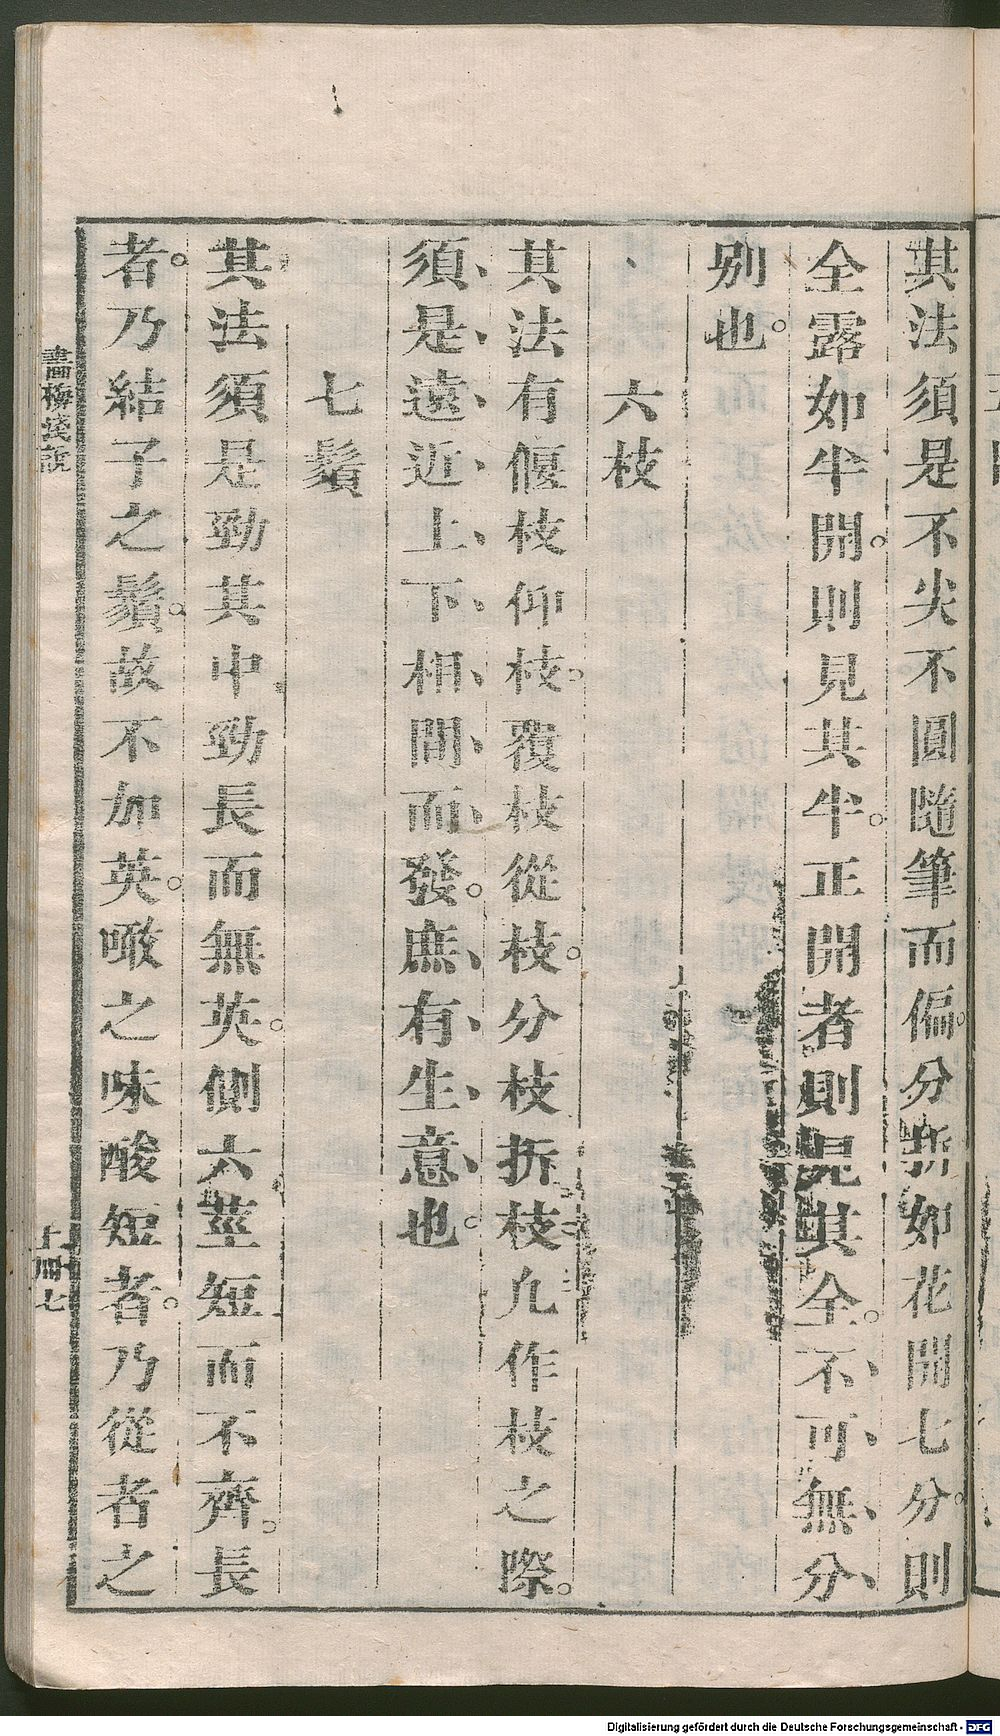 其法須是不尖不圓隨筆而偏。分折如花開七分。則
全露如半開。則見其半。正開者。則見其全。不、可、無、分、
別也。
六枝
其法有偃枝仰枝。覆枝從枝。分枝折枝凡作枝之際。
須、是、遠、近、上、下、相、間、而、發。庶、有、生、意、也。
七鬚
其法須是勁其中勁長而無英。側六莖短而不齊。長
者。乃結子之鬚。故不加英。噉之味酸短者。乃從者之
畫梅淺說
上冊 七
Digitalisierung gefördert durch die Deutsche Forschungsgemeinschaft - DFG